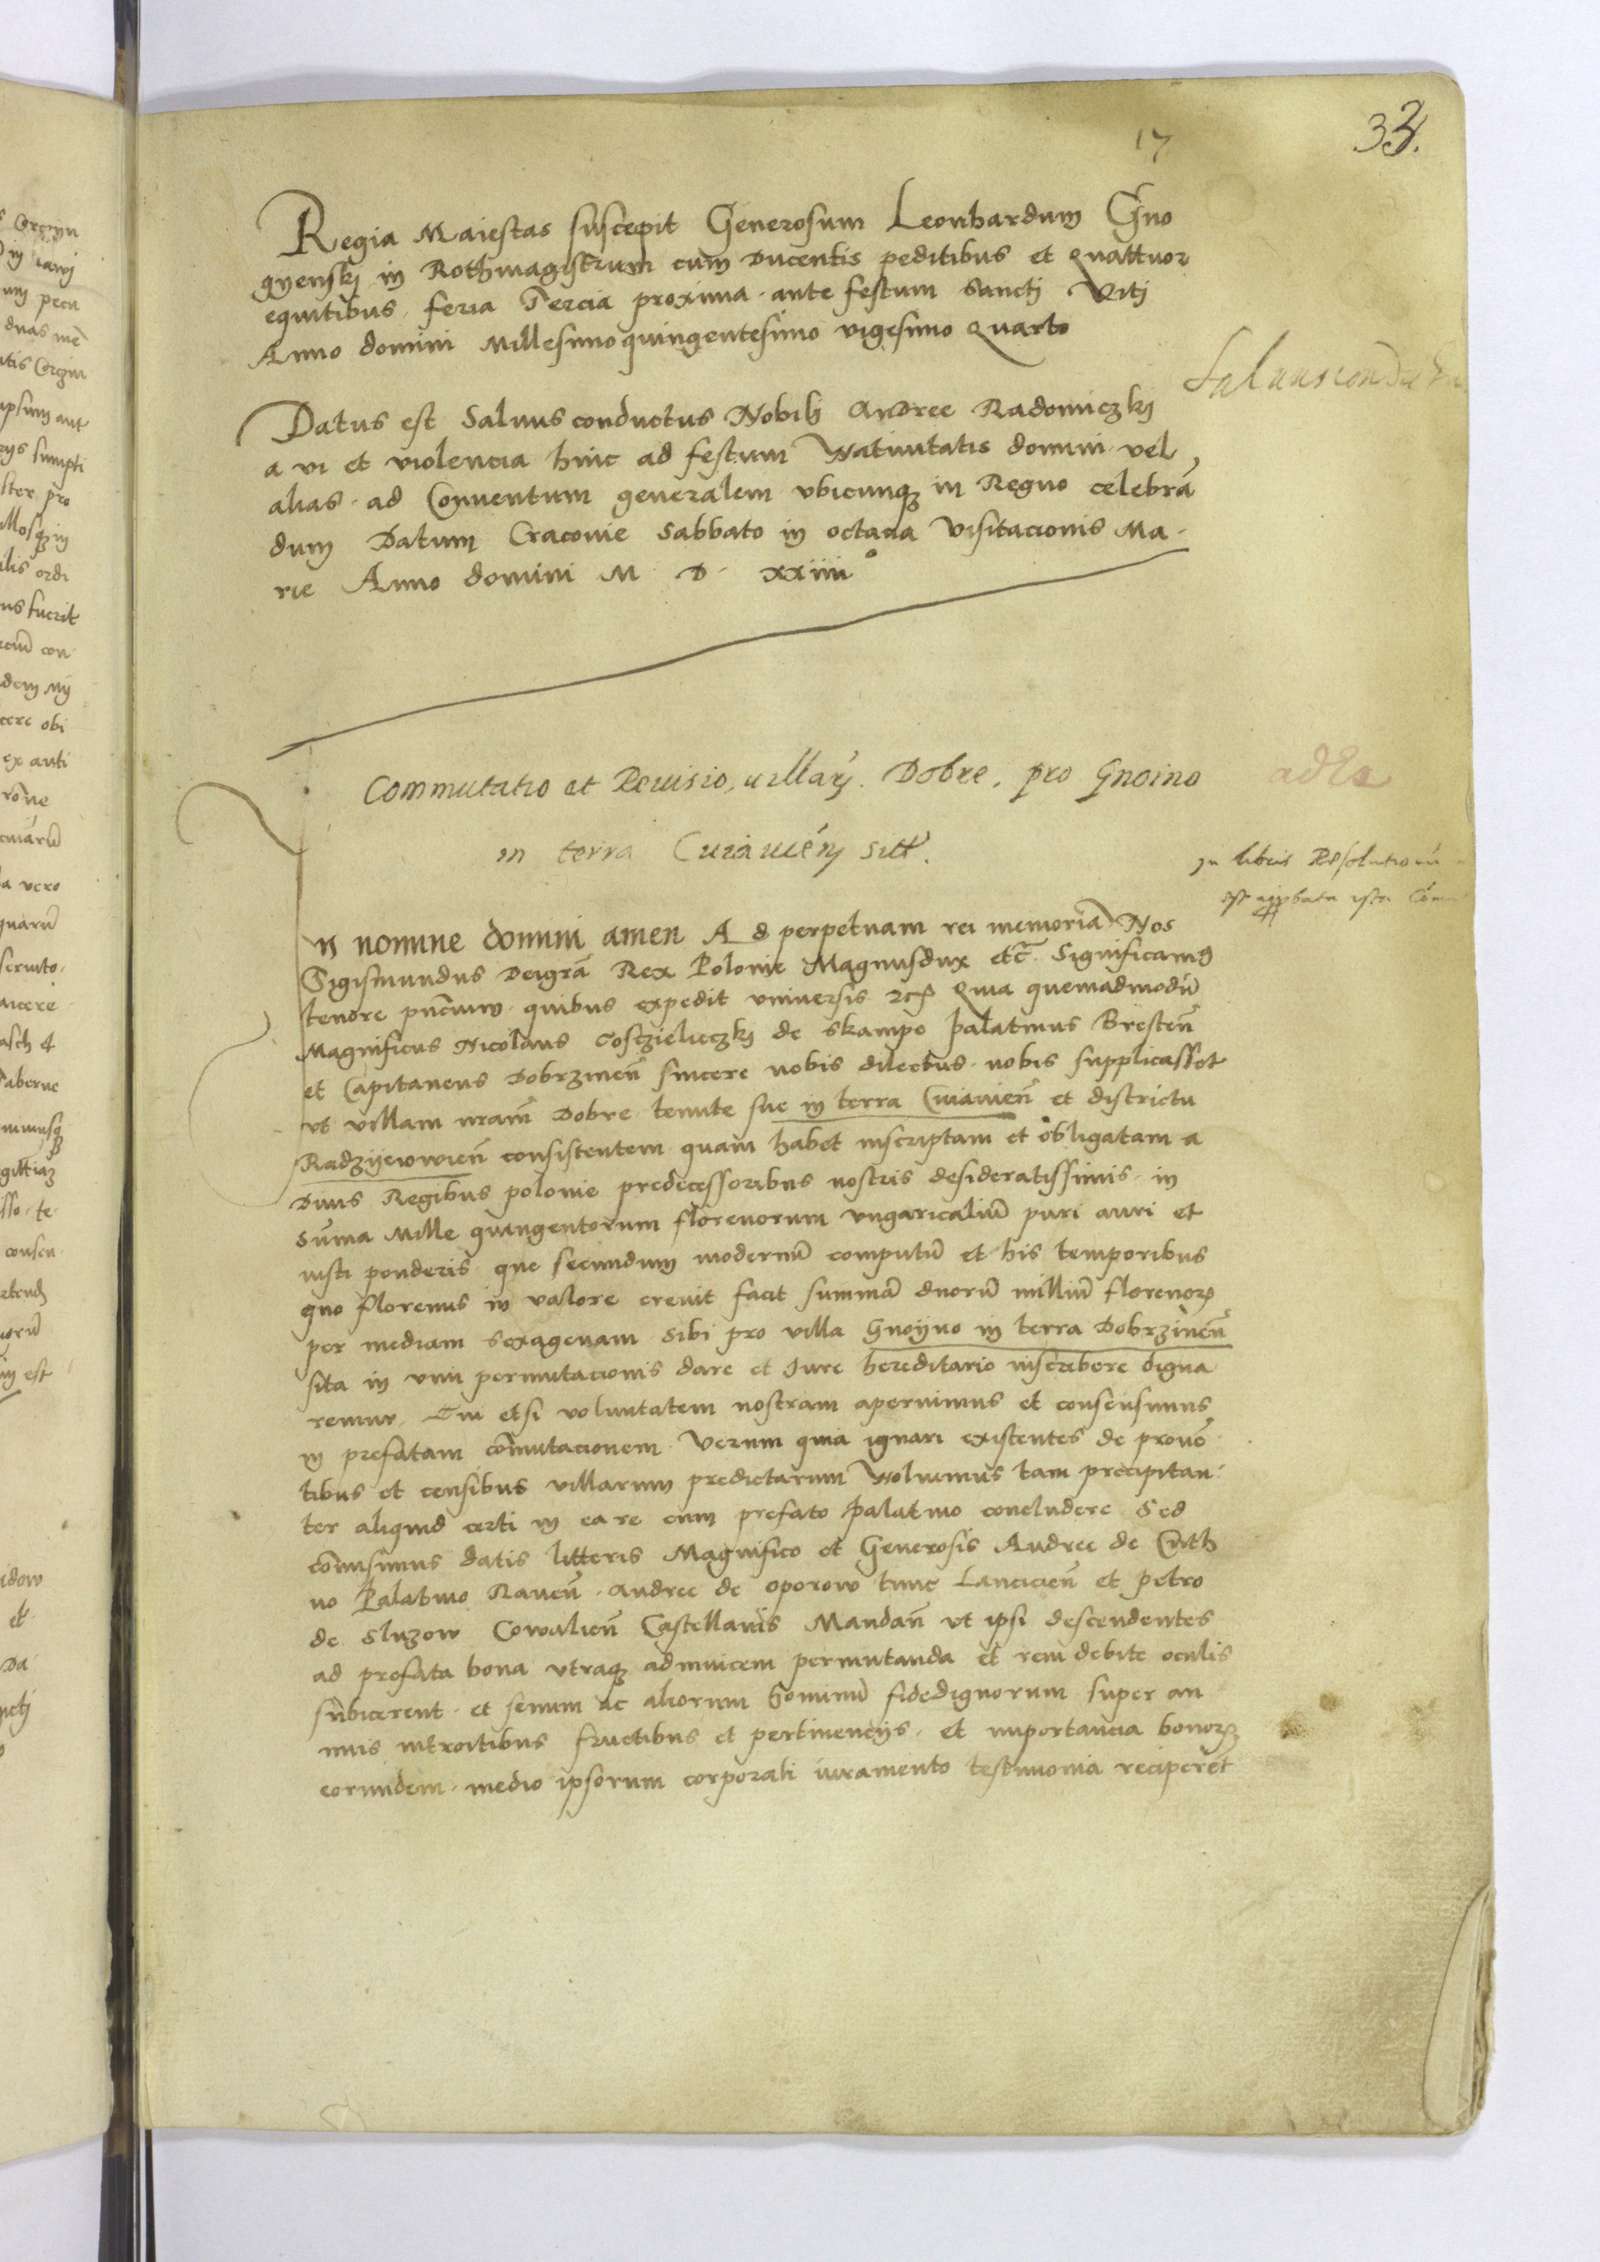 17
33.
Regia Maiestas suscepit Generosum Leonhardum Gno
gyenskj in Rothmagistrum cum Ducentis peditibus et Quattuor
equitibus, feria Tercia proxima ante festum Sanctj Vitj
Anno domini Millesimo quingentesimo vigesimo Quarto
Saluus condu
Datus est Saluus conductus Nobilj Andree Radomiczkj
a vi et violencia hinc ad festum Natiuitatis domini vel
alias ad Conuentum generalem vbicunq in Regno celebrā
dum Datum Cracouie Sabbato in octaua Visitacionis Ma-
rie Anno domini M D xxiiii°
Commutatio et Reuisio, villarj. Dobre, pro Gnoino
in terra Cuiauieñ sitt.
In libris Resolutionū
est approbata ista Com
n nomine domini amen Ad perpetuam rei memoriā Nos
Sigismundus Deigrā Rex Polonie Magnusdux etc̄ Significamus
tenore pn̄cium quibus expedit vniuersis Quia quemadmodū
Magnificus Nicolaus Cosczieleczkj de Skampe palatinus Bresteñ
et Capitaneus Dobrzineñ sincere nobis dilectus nobis supplicasset
vt villam nram̄ Dobre tenute sue in terra Cuiauieñ et districtu
Radzyewwieñ consistentem quam habet inscriptam et obligatam a
Diuis Regibus polonie predecessoribus nostris desideratissimis in
Sum̄a Mille quingentorum florenorum vngaricaliū puri auri et
iusti ponderis que secundum modernū computū et his temporibus
quo florenus in valore creuit facit summā duorū milliū florenorʒ
per mediam sexagenam Sibi pro villa Gnoyno in terra Dobrzineñ
sita in vim permutacionis dare et Iure hereditario inscribere digna
remur, Cui etsi voluntatem nostram aperuimus et consensimus
in prefatam com̄utacionem Verum quia ignari existentes de prouē
tibus et censibus villarum predictarum Noluimus tam precipitan-
ter aliquid certi in ea re cum prefato palatino concludere Sed
com̄isimus datis litteris Magnifico et Generosis Andree de Cuth
no Palatino Raueñ Andree de oporow tunc Lancicieñ et petro
de Sluzow Cowalieñ Castellanis Mandan̄ vt ipsi descendentes
ad prefata bona vtraq adinuicem permutanda et rem debite oculis
subicerent et senum ac aliorum hominū fidedignorum super an
nuis introitibus fructibus et pertinencijs et importancia bonorʒ
eorundem medio ipsorum corporali iuramento testimonia reciperēt